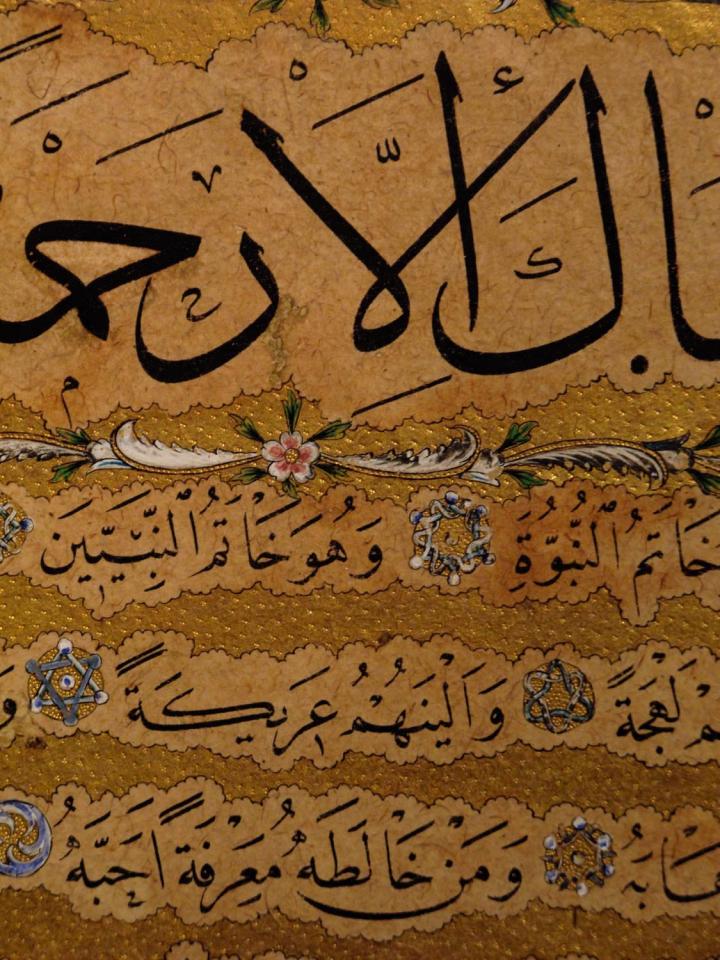 ـنَاكَ إِلَّا رَحْمَـ
خَاتَمُ النُّبُوَّةِ وَهُوَ خَاتَمُ النَّبِيِّينَ
ـمْ لَهْجَةً وَأَلْيَنَهُمْ عَرِيكَةً وَ
هَابَهُ وَمَنْ خَالَطَهُ مَعْرِفَةً أَحَبَّهُ